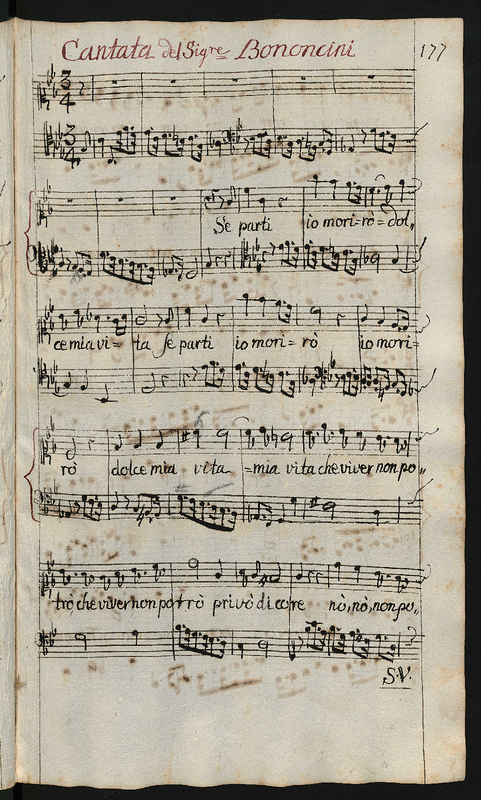 Cantata del Sigre Bononcini 177
3/4
3/4
Se parti io mori=rò=dol,,
ce mia vi= ta se parti io mori= rò io mori=
rò dolce mia vita =mia vita che viver non po,,
trò, che viver non potrò privo di core nò, nò, non po,,
S.V.